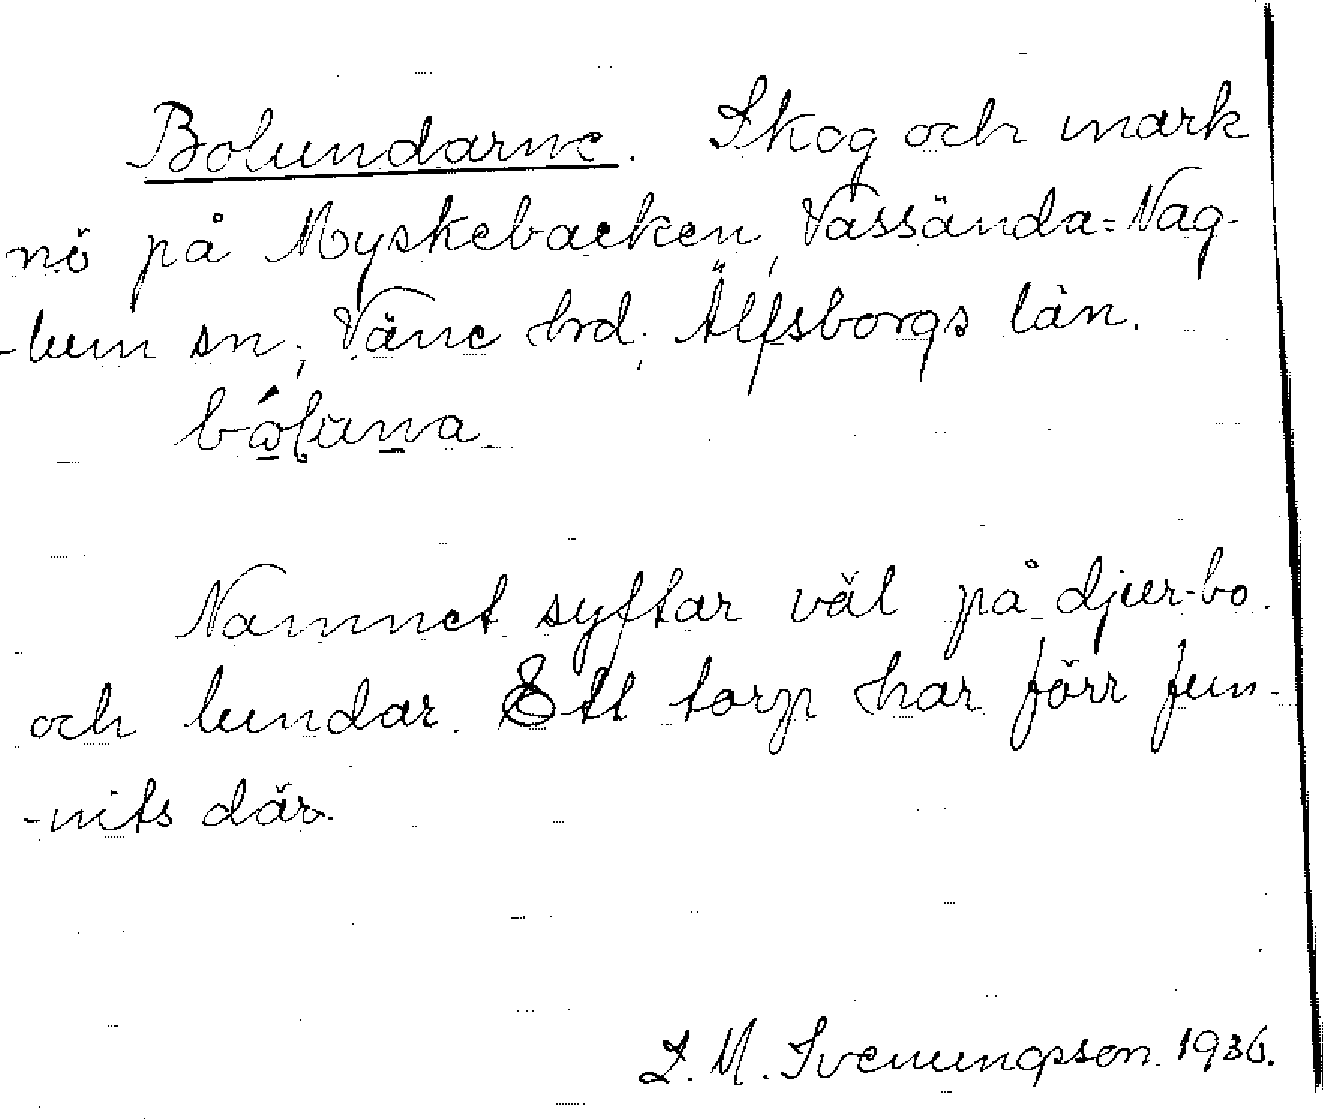 Bolundarne. Skog och mark
nö på Myskebacken, Vassända-Nag-
-lum sn; Väne hrd; Älfsborgs län.
Namnet syftar väl på djur-bo
och lundar. Ett torp har förr fun-
-nits där.
L. M. Svenungsson. 1936.